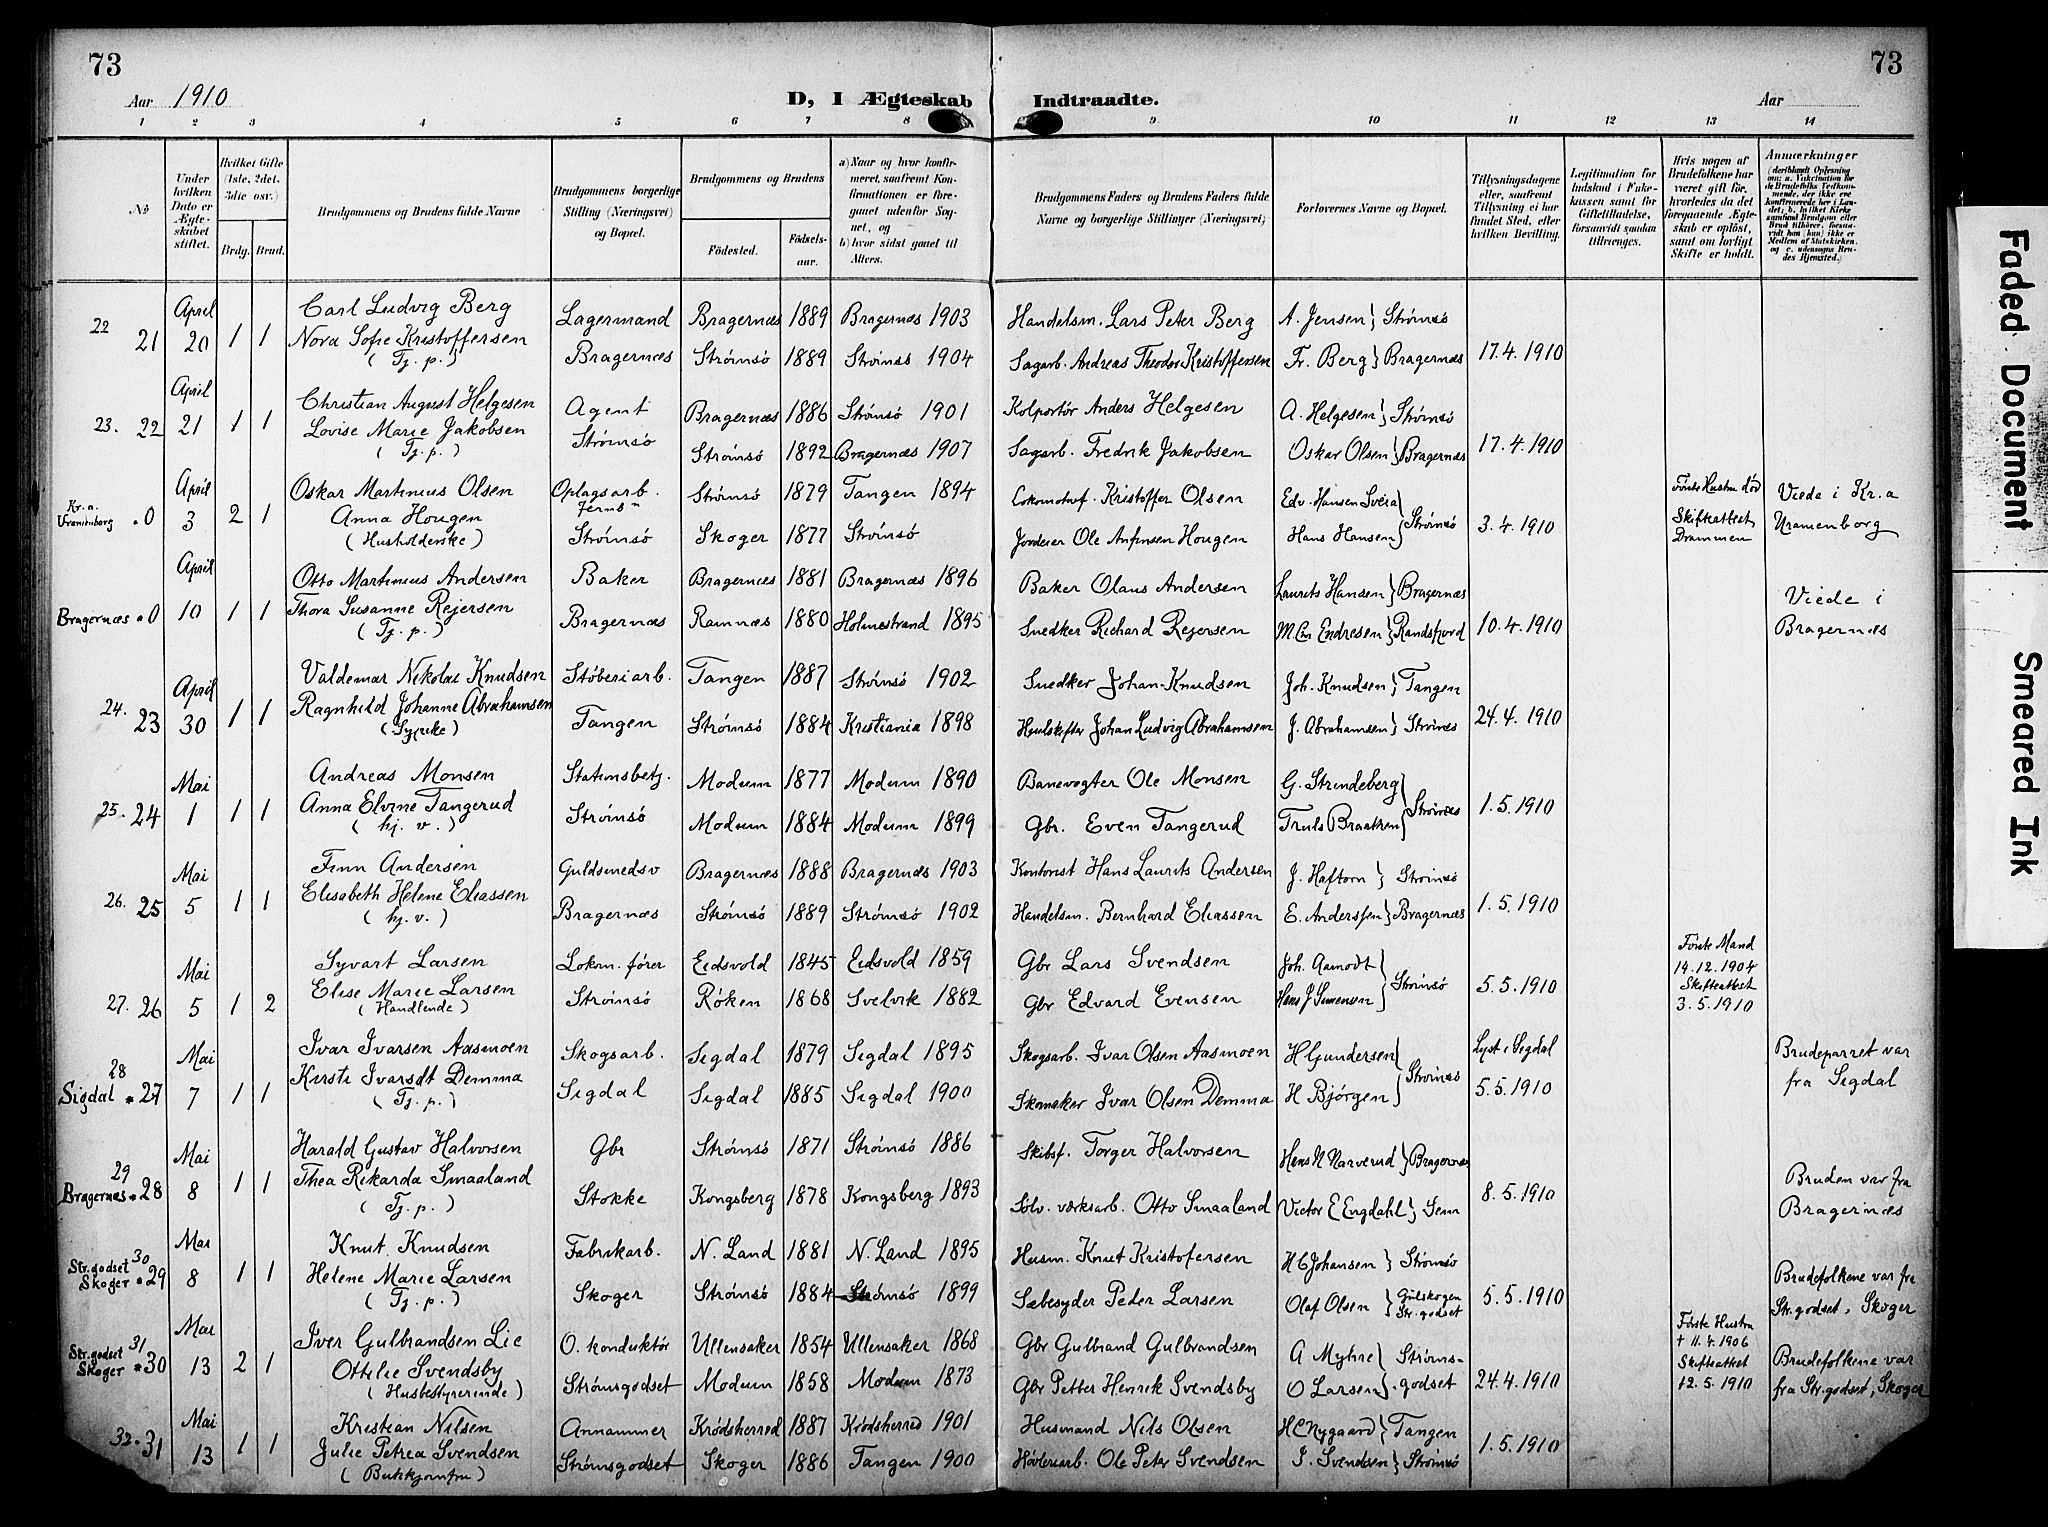 73
73
Aar 1910
D, I Ægteskab Indtraadte.
Aar
1 2 3 4 5 6 7 8 9 10 11 12 13 14
No
Under hvilken Dato er Ægteskabet stiftet.
Hvilket Gifte (1ste, 2det. 3die osv.)
Brdg. Brud.
Brudgommens og Brudens fulde Navne
Brudgommens borgerlige Stilling (Næringsvei) og Bopæl.
Brudgommens og Brudens
Fødested.
Fødselsaar.
a) Naar og hvor konfirmeret, saafremt Konfirmationen er foregaaet udenfor Sognet, og
b) hvor sidst gaaet til Alters.
Brudgommens Faders og Brudens Faders fulde Navne og borgerlige Stillinger (Næringsvei)
Forlovernes Navne og Bopæl.
Tillysningsdagene eller, saafremt Tillysning ei har fundet Sted, efter hvilken Bevilling.
Legitimation for Indskud i Enkekassen samt for Giftetilladelse, forsaavidt saadan tiltrænges.
Hvis nogen af Brudefolkene har været gift før, hvorledes da det foregaaende Ægteskab er opløst, samt om lovligt Skifte er holdt.
Anmærkninger (deriblandt Oplysning om: a. Vakcination for de Brudefolks Vedkommende, der ikke ere konfirmerede her i Landet; b. hvilket Kirkesamfund Brudgom eller Brud tilhører, forsaavidt han (hun) ikke er Medlem af Statskirken, og c. udensogns Brudes Hjemsted.)
22 21 April 20 1 1 Carl Ludvig Berg Lagermand Bragernæs 1889 Bragernæs 1903 Handelsm. Lars Peter Berg A. Jensen } Strømsö
Nora Sofie Kristoffersen (Tj. p.) Bragernæs Strømsö 1889 Strömsö 1904 Sagarb. Andreas Theodor Kristoffersen Fr. Berg } Bragernæs 17.4.1910
23. 22 April 21 1 1 Christian August Helgesen Agent Bragernæs 1886 Strømsö 1901 Kolportör Anders Helgesen A. Helgesen } Strømsö
Lovise Marie Jakobsen (Tj. p.) Strømsö Strømsö 1892 Bragernæs 1907 Sagarb. Fredrik Jakobsen Oskar Olsen } Bragernæs 17.4.1910
Kr.a. Uranienborg 0 April 3 2 1 Oskar Martinius Olsen Oplagsarb. Strømsö 1879 Tangen 1894 Lokomotivf. Kristoffer Olsen Edv. Hansen Sveia } Strømsö Første Hustru död Viede i Kr.a
Anna Hougen (Husholderske) Strømsö Skoger 1877 Strømsö Jordeier Ole Anfinsen Hougen Hans Hansen 3.4.1910 Skifteattest Drammen Uranienborg
Bragernæs 0 April 10 1 1 Otto Martinius Andersen Baker Bragernæs 1881 Bragernæs 1896 Baker Olaus Andersen Laurits Hansen } Bragernæs Viede i
Thora Susanne Rejersen (Tj. p.) Bragernæs Ramnæs 1880 Holmestrand 1895 Snedker Richard Rejersen Endresen } Randsfjord 10.4.1910 Bragernæs
24. 23 April 30 1 1 Valdemar Nikolai Knudsen Støberiarb. Tangen 1887 Strømsö 1902 Snedker Johan Knudsen Joh. Knudsen } Tangen
Ragnhild Johanne Abrahamsen (Syerske) Tangen Strømsö 1884 Kristiania 1898 Hjulskifter Johan Ludvig Abrahamsen J. Abrahamsen } Strömsö 24.4.1910
25. 24 Mai 1 1 1 Andreas Monsen Stationsbetj. Modum 1877 Modum 1890 Banevogter Ole Monsen G. Strindeberg } Strömsö
Anna Elvine Tangerud (hj. v.) Strømsö Modum 1884 Modum 1899 Gbr. Even Tangerud Truls Braathen 1.5.1910
26. 25 Mai 5 1 1 Finn Andersen Guldsmedsv Bragernæs 1888 Bragernæs 1903 Kontorist Hans Laurits Andersen J. Haftorn } Strömsö
Elisabeth Helene Eliassen (hj. v.) Bragernæs Strømsö 1889 Strømsö 1902 Handelsm. Bernhard Eliassen E. Andersen } Bragernæs 1.5.1910
27. 26 Mai 5 1 2 Syvart Larsen Lokom. fører Eidsvold 1845 Eidsvold 1859 Gbr Lars Svendsen Joh. Aamodt } Strømsö Første Mand 14.12.1904
Elise Marie Larsen (Handlende) Strømsö Røken 1868 Svelvik 1882 Gbr Edvard Evensen Hans J Simensen 5.5.1910 Skifteattest 3.5.1910
28 Sigdal 27 Mai 7 1 1 Ivar Ivarsen Aasmoen Skogsarb. Sigdal 1879 Sigdal 1895 Skogsarb. Ivar Olsen Aasmoen H Gundersen } Strømsö Lyst i Sigdal Brudeparret var
Kirsti Ivarsdt Demma (Tj. p.) Sigdal Sigdal 1885 Sigdal 1900 Skomaker Ivar Olsen Demma H Bjørgen 5.5.1910 fra Sigdal
29 Bragernæs 28 Mai 8 1 1 Harald Gustav Halvorsen Gbr Strømsö 1871 Strømsö 1886 Skibsf. Torger Halvorsen Hans N Narverud } Bragernæs Bruden var fra
Thea Rikarda Smaaland (Tj. p.) Stokke Kongsberg 1878 Kongsberg 1893 Sølv. værksarb. Otto Smaaland Victor E Engdahl } Sem 8.5.1910 Bragernæs
30 Str.godset Skoger 29 Mai 8 1 1 Knut Knudsen Fabrikarb. N. Land 1881 N. Land 1895 Husm. Knut Kristofersen H C Johansen } Strømsö Brudefolkene var fra
Helene Marie Larsen (Tj. p.) Skoger Strømsö 1884 Strømsö 1899 Sæbesyder Peter Larsen Olaf Olsen } Gulskogen Str.godset 5.5.1910 Str.godset, Skoger
31 Str.godset Skoger 30 Mai 13 2 1 Iver Gulbrandsen Lie O. konduktør Ullensaker 1854 Ullensaker 1868 Gbr Gulbrand Gulbrandsen A Myhre } Strøms- Første Hustru † 11.4.1906
Ottilie Svendsby (Husbestyrerinde) Strømsgodset Modum 1858 Modum 1873 Gbr Petter Henrik Svendsby O Larsen } godset 24.4.1910 Skifteattest 12.5.1910 Brudefolkene var fra Str.godset, Skoger
32. 31 Mai 13 1 1 Kristian Nilsen Annammer Krødsherred 1887 Krødsherred 1901 Husmand Nils Olsen H C Nygaard } Tangen
Julie Petrea Svendsen (Butikjomfru) Strømsgodset Skoger 1886 Tangen 1900 Høvleriarb. Ole Peter Svendsen J. Svendsen } Strømsö 1.5.1910
Faded Document
Smeared Ink